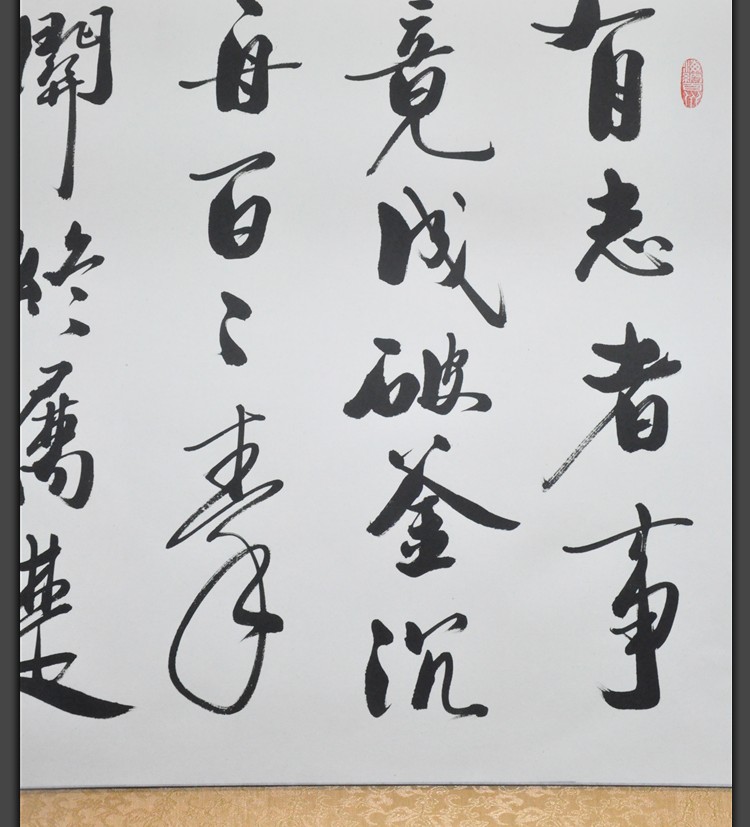 有志者事
竟成破釜沉
舟百二秦
關終屬楚